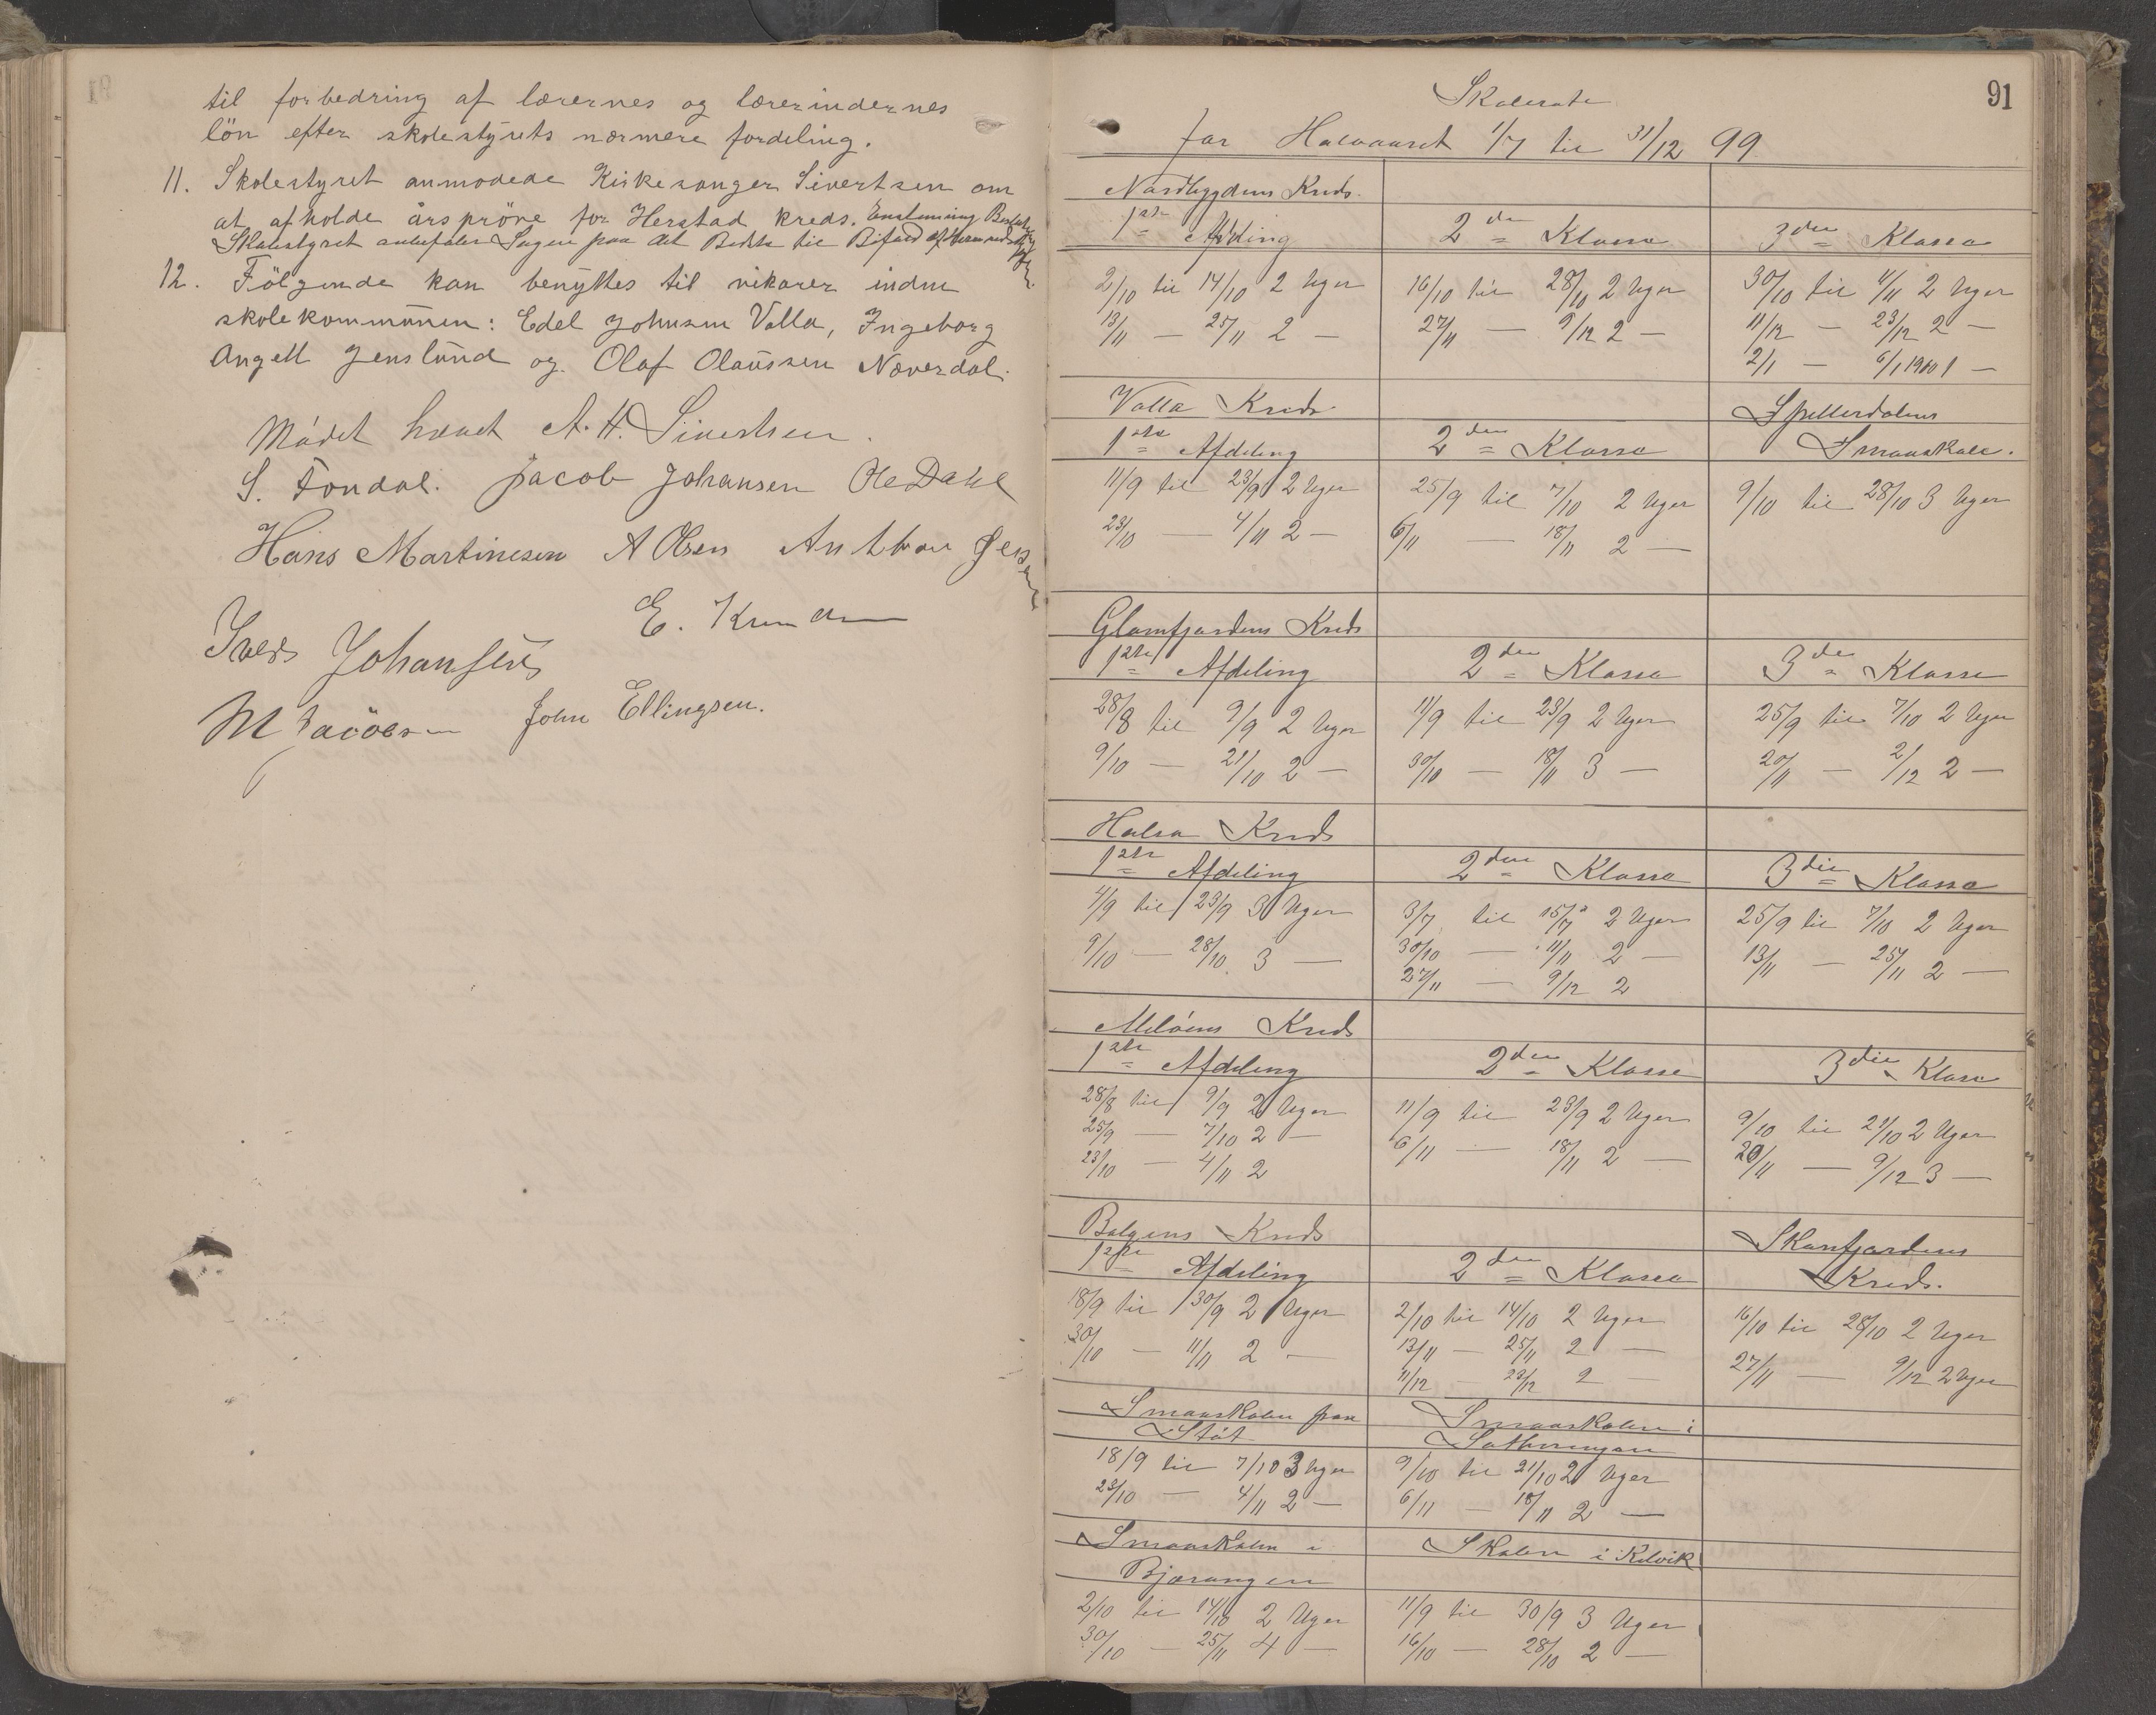 til forbedring af lærernes og lærerindernes
lön efter skolestyrets nærmere fordeling.
11. Skolestyret anmodede Kirkesanger Sivertsen om
at afholde årspröve for Herstad kreds. Enstemmig Beslutning
Skolestyret anbefaler Sagen paa det Bedste til Bifald af Herredsstyret
12. Fölgende kan benyttes til vikarer inden
skolekommunen: Edel Johnsen Valla, Ingeborg
Angell Jenslund og Olaf Olaussen Næverdal.
Mödet hævet A. H. Sivertsen.
S. Fondal. Jacob Johansen Ole Dahl
Hans Martinesen A Olsen Anthon Jensen
E. Knudsen
Iver Johansen
M Jacobsen John Ellingsen.
91
Skolerute
for Halvaaret 1/7 til 31/12 99
Nordbygdens Kreds.
1ste Afdeling 2den Klasse 3die Klasse
2/10 til 14/10 2 Uger 16/10 til 28/10 2 Uger 30/10 til 4/11 2 Uger
13/11 — 25/11 2 — 27/11 — 9/12 2 — 11/12 — 23/12 2 —
2/1 — 6/1 1900 1 —
Valla Kreds Spellerdalens
1ste Afdeling 2den Klasse Smaaskole.
11/9 til 23/9 2 Uger 25/9 til 7/10 2 Uger 9/10 til 28/10 3 Uger
23/10 — 4/11 2 — 6/11 — 18/11 2 —
Glomfjordens Kreds
1ste Afdeling 2den Klasse 3die Klasse
28/8 til 9/9 2 Uger 11/9 til 23/9 2 Uger 25/9 til 7/10 2 Uger
9/10 — 21/10 2 — 30/10 — 18/11 3 — 20/11 — 2/12 2 —
Halsa Kreds
1ste Afdeling 2den Klasse 3die Klasse
4/9 til 23/9 3 Uger 3/7 til 15/7 2 Uger 25/9 til 7/10 2 Uger
9/10 — 28/10 3 — 30/10 — 11/11 2 — 13/11 — 25/11 2 —
27/11 — 9/12 2
Melöens Kreds
1ste Afdeling 2den Klasse 3die Klasse
28/8 til 9/9 2 Uger 11/9 til 23/9 2 Uger 9/10 til 21/10 2 Uger
25/9 — 7/10 2 — 6/11 — 18/11 2 — 20/11 — 9/12 3 —
23/10 — 4/11 2
Bolgens Kreds Skarsfjordens
1ste Afdeling 2den Klasse Kreds.
18/9 til 30/9 2 Uger 2/10 til 14/10 2 Uger 16/10 til 28/10 2 Uger
30/10 — 11/11 2 — 13/11 — 25/11 2 — 27/11 — 9/12 2 Uger
11/12 — 23/12 2 —
Smaaskolen paa Smaaskolen i
Stöt
18/9 til 7/10 3 Uger 9/10 til 21/10 2 Uger
23/10 — 4/11 2 — 6/11 — 18/11 2 —
Smaaskolen i Skolen i Kilvik
Bjærangen
2/10 til 14/10 2 Uger 11/9 til 30/9 3 Uger
30/10 — 25/11 4 — 16/10 — 28/10 2 —